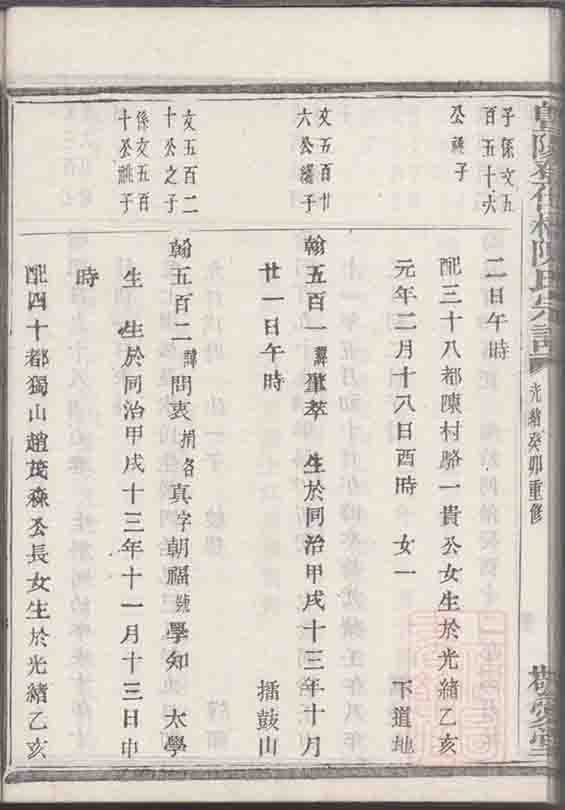 光緒癸卯重修
子係文五
百五十六
公祧子
二日午時
配三十八都陳村駱一貴公女生於光緒乙亥
元年二月十八日酉時 女一 下道地
文五百廿
六公繼子
翰五百一諱肇萃 生於同治甲戌十三年十月
廿一日午時 擂鼓山
文五百二
十公之子
係文五百
十公祧子
翰五百二諱問衷捐名真字朝福號學知 太學
生 生於同治甲戌十三年十一月十三日申
時
配四十都獨山趙茂森公長女生於光緒乙亥